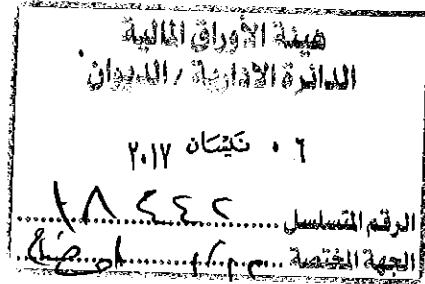 هيئة الأوراق المالية
الدائرة الادارية / الديوان
٠٦ نيسان ٢٠١٧
الرقم المتسلسل ١٨٤٤٢
الجهة المختصة